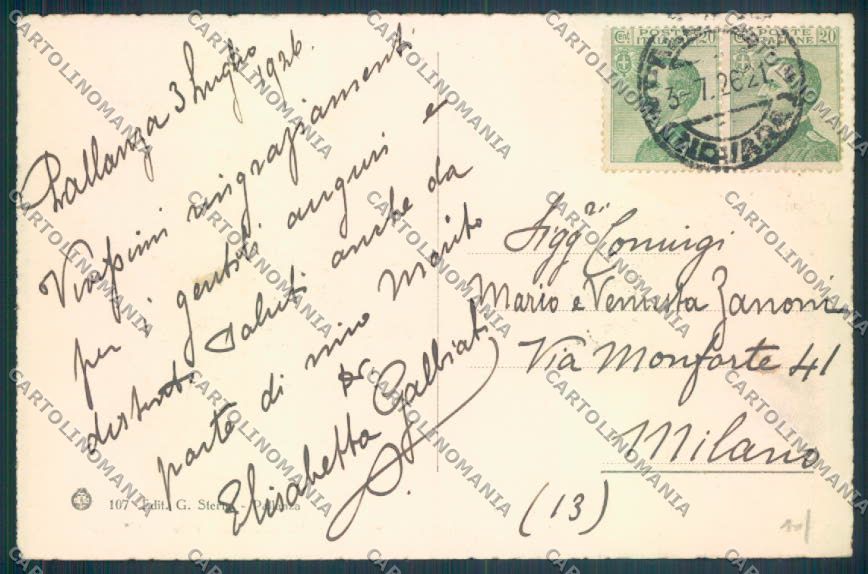 Pallanza 3 Luglio
1926.
Vivissimi ringraziamenti
per i gentili auguri e
distinti saluti anche da
parte di mio Marito
Elisabetta Galbiati
107 Edit. G. Sterna - Pallanza
POSTE ITALIANE
CEN. 20
POSTE ITALIANE
20
3-7.26.21
Sigg.ri Coniugi
Mario e Venusta Zanoni
Via Monforte 41
Milano
(13)
CARTOLINOMANIA